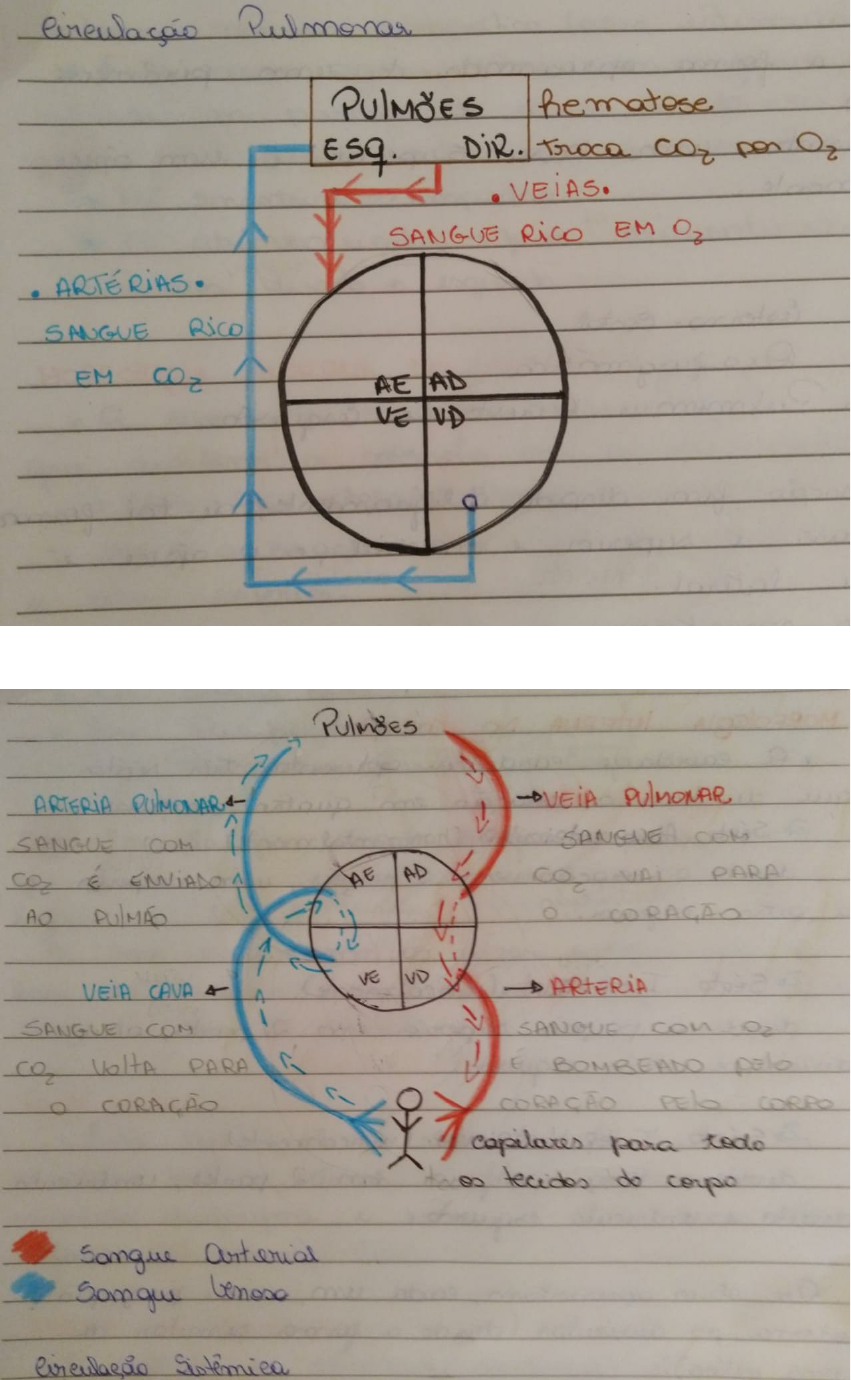 Circulação Pulmonar
PUlMÕES
ESQ. DIR.
hematose
troca CO₂ por O₂
• VEIAS •
SANGUE RICO EM O₂
• ARTÉRIAS •
SANGUE RICO
EM CO₂
AE AD
VE VD
Pulmões
ARTERIA PUlMONAR
SANGUE COM
CO₂ É ENVIADO
AO PUlMÃO
VEIA PUlMONAR
SANGUE COM
CO₂ VAI PARA
O CORAÇÃO
AE AD
VE VD
VEIA CAVA
SANGUE COM
CO₂ VOlTA PARA
O CORAÇÃO
ARTERIA
SANGUE COM O₂
É BOMBEADO PElO
CORAÇÃO PElO CORPO
capilares para todo
os tecidos do corpo
Sangue Arterial
Sangue Venoso
Circulação Sistêmica